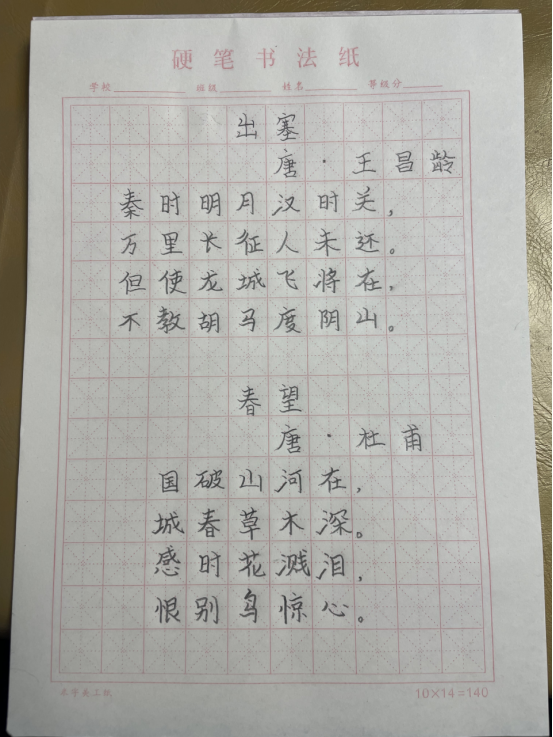 硬笔书法纸
学校 班级 姓名 等级分
出塞
唐·王昌龄
秦时明月汉时关，
万里长征人未还。
但使龙城飞将在，
不教胡马度阴山。
春望
唐·杜甫
国破山河在，
城春草木深。
感时花溅泪，
恨别鸟惊心。
10×14=140